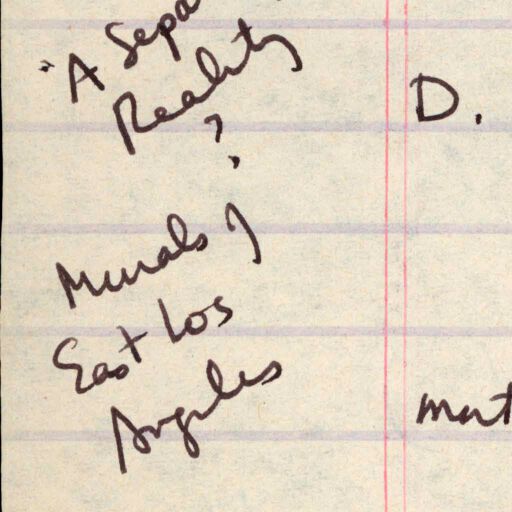 "A Sepa
Reality
?
Murals of
East Los
Angeles
D.
mat